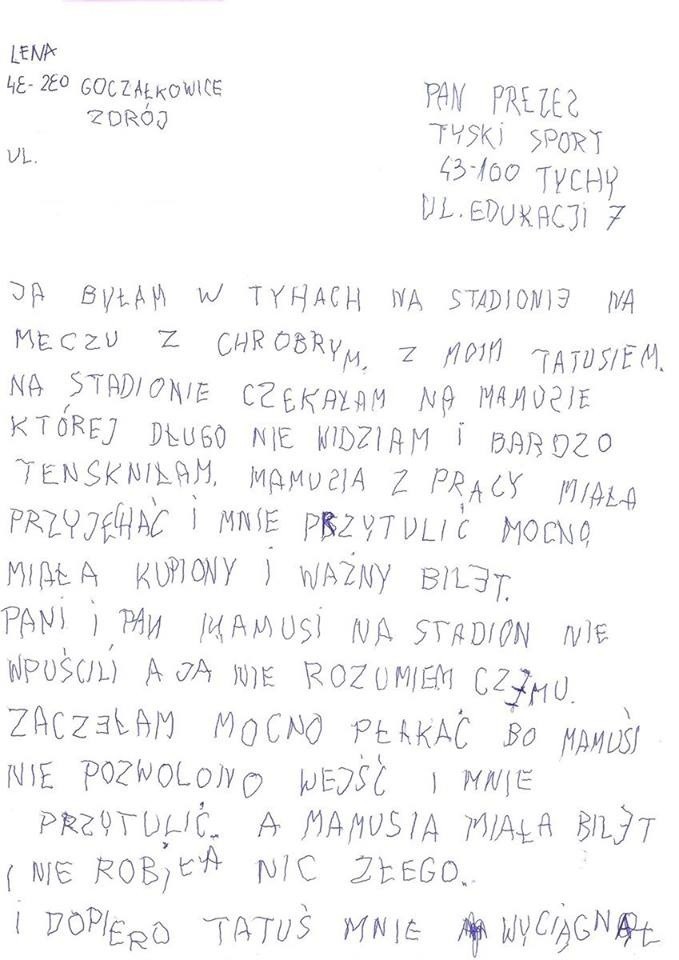 LENA
43-230 GOCZAŁKOWICE
ZDRÓJ
UL.
PAN PREZES
TYSKI SPORT
43-100 TYCHY
UL. EDUKACJI 7
JA BYŁAM W TYHACH NA STADIONIE NA
MECZU Z CHROBRYM, Z MOIM TATUSIEM.
NA STADIONIE CZEKAŁAM NA MAMUSIE
KTÓREJ DŁUGO NIE WIDZIAM I BARDZO
TENSKNIŁAM. MAMUSIA Z PRACY MIAŁA
PRZYJECHAĆ I MNIE PRZYTULIĆ MOCNO
MIAŁA KUPIONY I WAŻNY BILET.
PANI I PAN MAMUSI NA STADION NIE
WPUŚCILI A JA NIE ROZUMIEM CZEMU.
ZACZEŁAM MOCNO PŁAKAĆ BO MAMUSI
NIE POZWOLONO WEJŚĆ I MNIE
PRZYTULIĆ. A MAMUSIA MIAŁA BILET
I NIE ROBIŁA NIC ZŁEGO.
I DOPIERO TATUŚ MNIE WYCIĄGNĄŁ